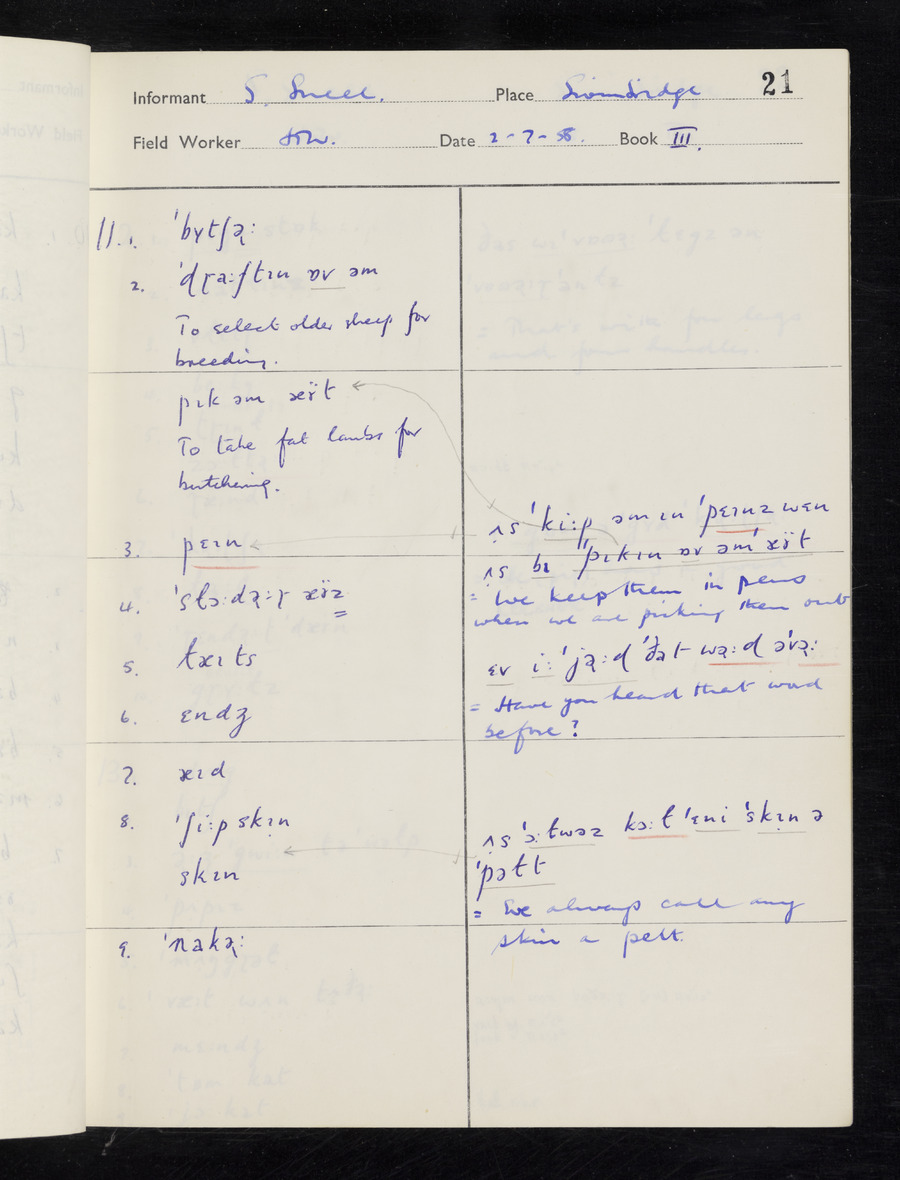 Informant S. Snell. Place 21
Field Worker Date 2-7-58. Book III.
11. 1. ˈbʏtʃə̢:
2. ˈdɽa:ftɪn ɒv əm
To select older sheep for
breeding.
pɪk əm æÿt
To take fat lambs for
butchering.
3. pɛɪn
4. ˈstɔ:də̢:ɽ æÿz
5. tæɪts
6. ɛndʒ
7. æɪd
8. ˈʃi:pskɪn
skɪn
9. ˈnakə̢:
ʌs ˈki:p əm ɪn ˈpɛɪnz wɛn
ʌs bɪ ˈpɪkɪn ɒv əm ˈæÿt
= We keep them in pens
when we are picking them out
ɛv i: ˈjə̢:d ˈðat wə̢:d əˈvə̢:
= Have you heard that word
before?
ʌs ˈɔ:twəz kɔ:t ˈɛni ˈskɪn ə
ˈpɔtt
= We always call any
skin a pelt.